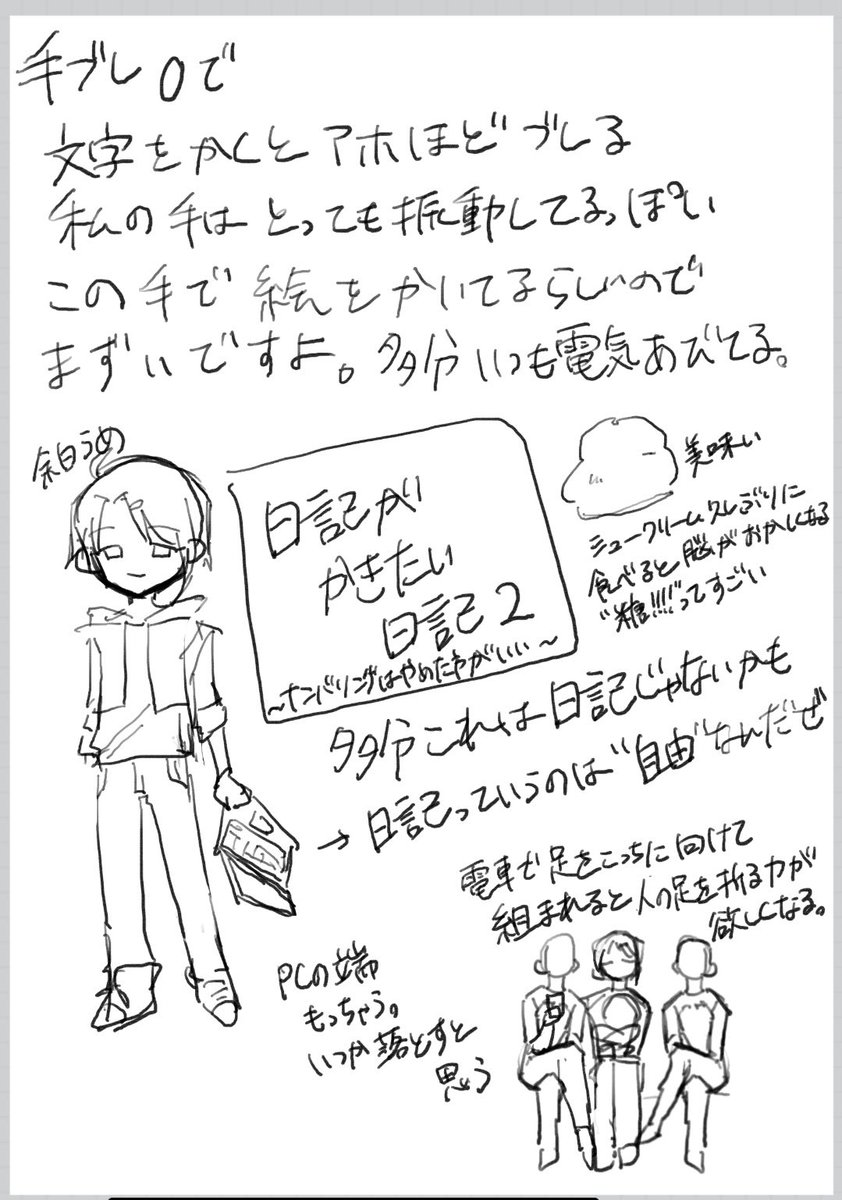 手ブレ0で
文字をかくとアホほどブレる
私の手はとっても振動してるっぽい
この手で絵をかいてるらしいので
まずいですよ。多分いつも電気あびてる。
余白うめ
日記が
かきたい
日記2
~ナンバリングはやめたわがいい~
美味い
シュークリーム久しぶりに
食べると脳がおかしくなる
"糖!!!!"ってすごい
多分これは日記じゃないかも
→日記っていうのは"自由"なんだぜ
電車で足をこっちに向けて
組まれると人の足を折る力が
欲しくなる。
PCの端
もっちゃう。
いつか落とすと
思う